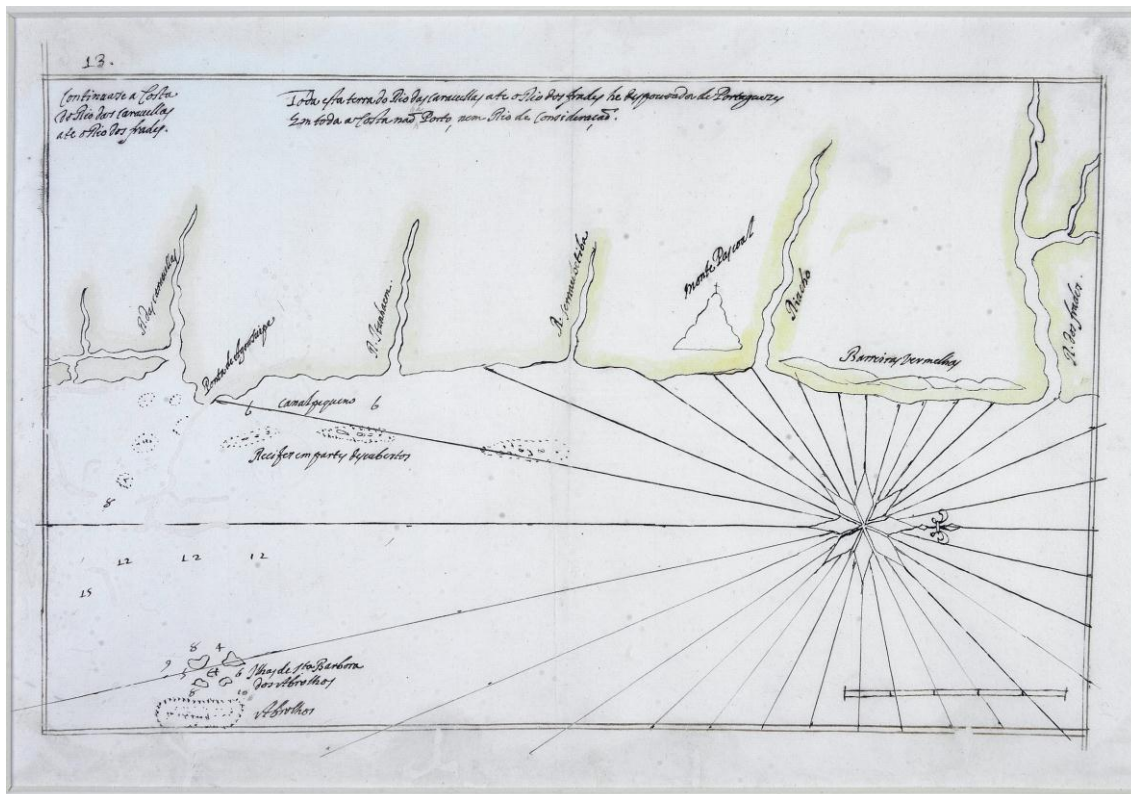 13.
Continuase a Costa
do Rio das Caravellas
ate o Rio dos frades.
Toda esta terra do Rio das Caravellas ate o Rio dos frades he despouoada de Portugueses
Em toda a Costa não Porto, nem Rio de Consideração.
R. das caravellas
Ponta de
R.
R.
monte Pascoal
Riacho
Barreiras Vermelhas
R. dos frades
6 Canal pequeno 6
Recifes em partes descubertos
8
12 12 12
15
8 4
9 5 6
Ilhas de Sta. Barbora
dos Abrolhos
8 10
Abrolhos